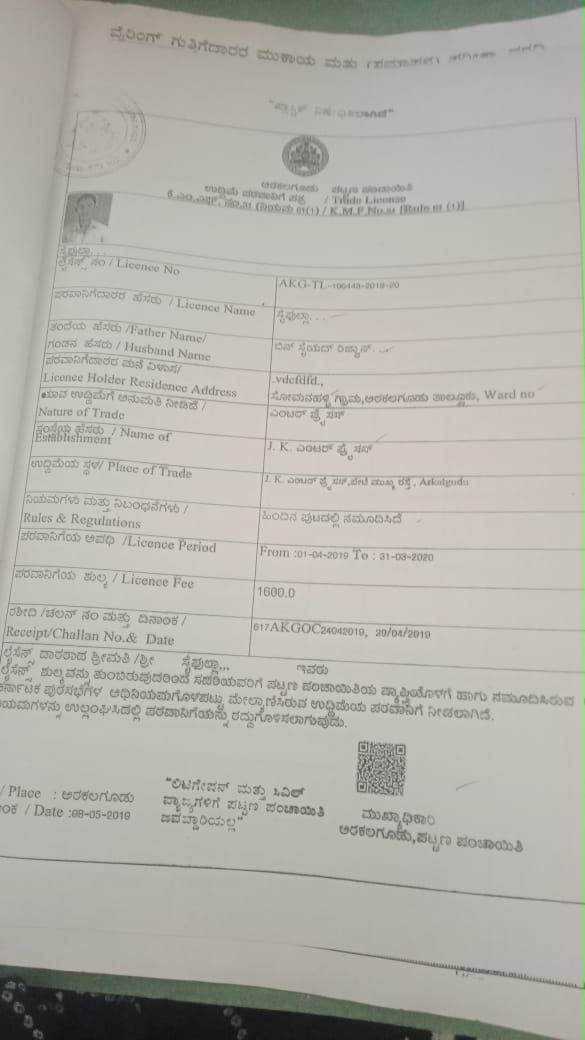 ವೈರಿಂಗ್ ಗುತ್ತಿಗೆದಾರರ ಮುಕಾಯ ಮತ್ತು
ಅರಕಲಗೂಡು ಪಟ್ಟಣ ಪಂಚಾಯಿತಿ
ಉದ್ದಿಮೆ ಪರವಾನಿಗೆ ಪತ್ರ / Trade License
ಕೆ.ಎಂ.ಎಫ್. ನಂ.31 (ನಿಯಮ 61(1) / K.M.F.No.31 [Rule 61 (1)]
ಸೈಫುಲ್ಲಾ...
ಲೈಸೆನ್ಸ್ ನಂ / Licence No
AKG-TL-100443-2019-20
ಪರವಾನಿಗೆದಾರರ ಹೆಸರು / Licence Name
ಸೈಫುಲ್ಲಾ...
ತಂದೆಯ ಹೆಸರು /Father Name/
ಗಂಡನ ಹೆಸರು / Husband Name
ಬಿನ್ ಸೈಯದ್ ರಿಜ್ವಾನ್...
ಪರವಾನಿಗೆದಾರರ ಮನೆ ವಿಳಾಸ/
Licence Holder Residence Address
.vdcfdfd.,
ಸೋಮನಹಳ್ಳಿ ಗ್ರಾಮ,ಅರಕಲಗೂಡು ತಾಲ್ಲೂಕು, Ward no
ಯಾವ ಉದ್ದಿಮೆಗೆ ಅನುಮತಿ ನೀಡಿದೆ /
Nature of Trade
ಎಂಟರ್ ಪ್ರೈಸಸ್
ಸಂಸ್ಥೆಯ ಹೆಸರು / Name of
Establishment
J. K. ಎಂಟರ್ ಪ್ರೈಸಸ್
ಉದ್ದಿಮೆಯ ಸ್ಥಳ/ Place of Trade
J. K. ಎಂಟರ್ ಪ್ರೈಸಸ್,ಪೇಟೆ ಮುಖ್ಯ ರಸ್ತೆ, Arkalgudu
ನಿಯಮಗಳು ಮತ್ತು ನಿಬಂಧನೆಗಳು /
Rules & Regulations
ಹಿಂದಿನ ಪುಟದಲ್ಲಿ ನಮೂದಿಸಿದೆ
ಪರವಾನಿಗೆಯ ಅವಧಿ /Licence Period
From :01-04-2019 To : 31-03-2020
ಪರವಾನಿಗೆಯ ಶುಲ್ಕ / Licence Fee
1600.0
ರಶೀದಿ /ಚಲನ್ ನಂ ಮತ್ತು ದಿನಾಂಕ /
Receipt/Challan No.& Date
617AKGOC24042019, 29/04/2019
ಲೈಸೆನ್ಸ್ ದಾರರಾದ ಶ್ರೀಮತಿ /ಶ್ರೀ ಸೈಫುಲ್ಲಾ... ಇವರು
ಲೈಸೆನ್ಸ್ ಶುಲ್ಕವನ್ನು ತುಂಬಿರುವುದರಿಂದ ಸದರಿಯವರಿಗೆ ಪಟ್ಟಣ ಪಂಚಾಯಿತಿಯ ವ್ಯಾಪ್ತಿಯೊಳಗೆ ಹಾಗು ನಮೂದಿಸಿರುವ
ಕರ್ನಾಟಕ ಪುರಸಭೆಗಳ ಅಧಿನಿಯಮಗೊಳಪಟ್ಟು ಮೇಲ್ಕಾಣಿಸಿರುವ ಉದ್ದಿಮೆಯ ಪರವಾನಿಗೆ ನೀಡಲಾಗಿದೆ.
ನಿಯಮಗಳನ್ನು ಉಲ್ಲಂಘಿಸಿದಲ್ಲಿ ಪರವಾನಿಗೆಯನ್ನು ರದ್ದುಗೊಳಿಸಲಾಗುವುದು.
/ Place : ಅರಕಲಗೂಡು
ಂಕ / Date :08-05-2019
"ಲಿಟಿಗೇಷನ್ ಮತ್ತು ಸಿವಿಲ್
ವ್ಯಾಜ್ಯಗಳಿಗೆ ಪಟ್ಟಣ ಪಂಚಾಯಿತಿ
ಜವಬ್ದಾರಿಯಲ್ಲ"
ಮುಖ್ಯಾಧಿಕಾರಿ
ಅರಕಲಗೂಡು,ಪಟ್ಟಣ ಪಂಚಾಯಿತಿ